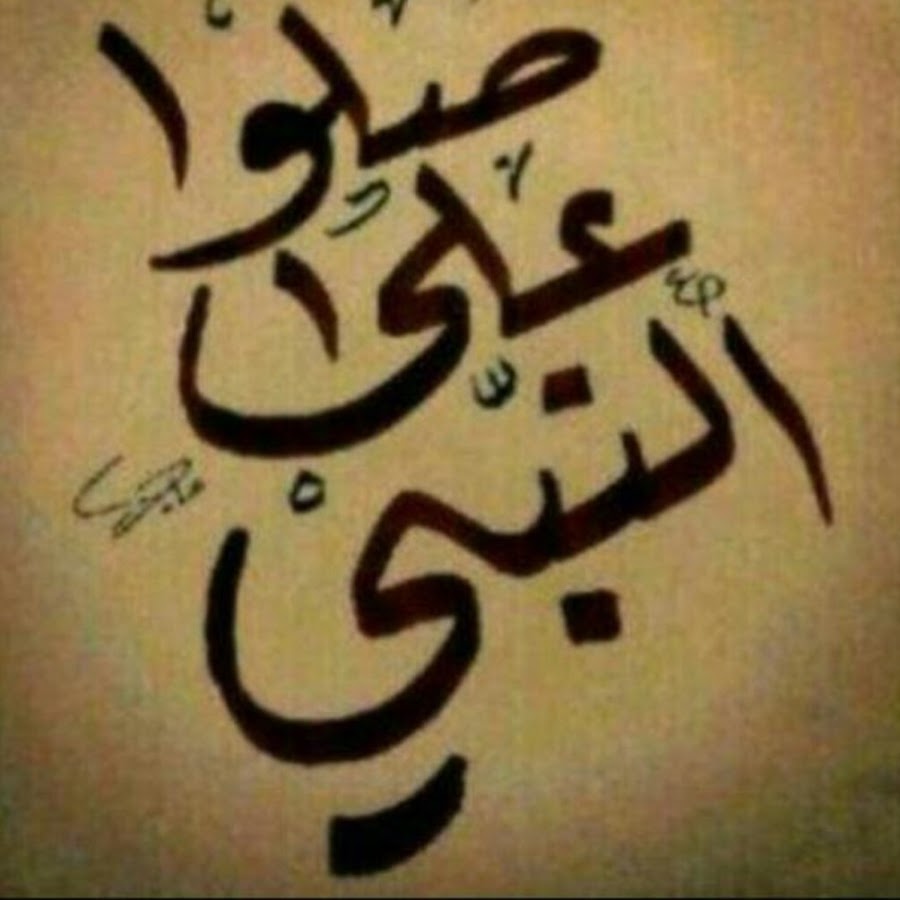 صلوا
على
النبي